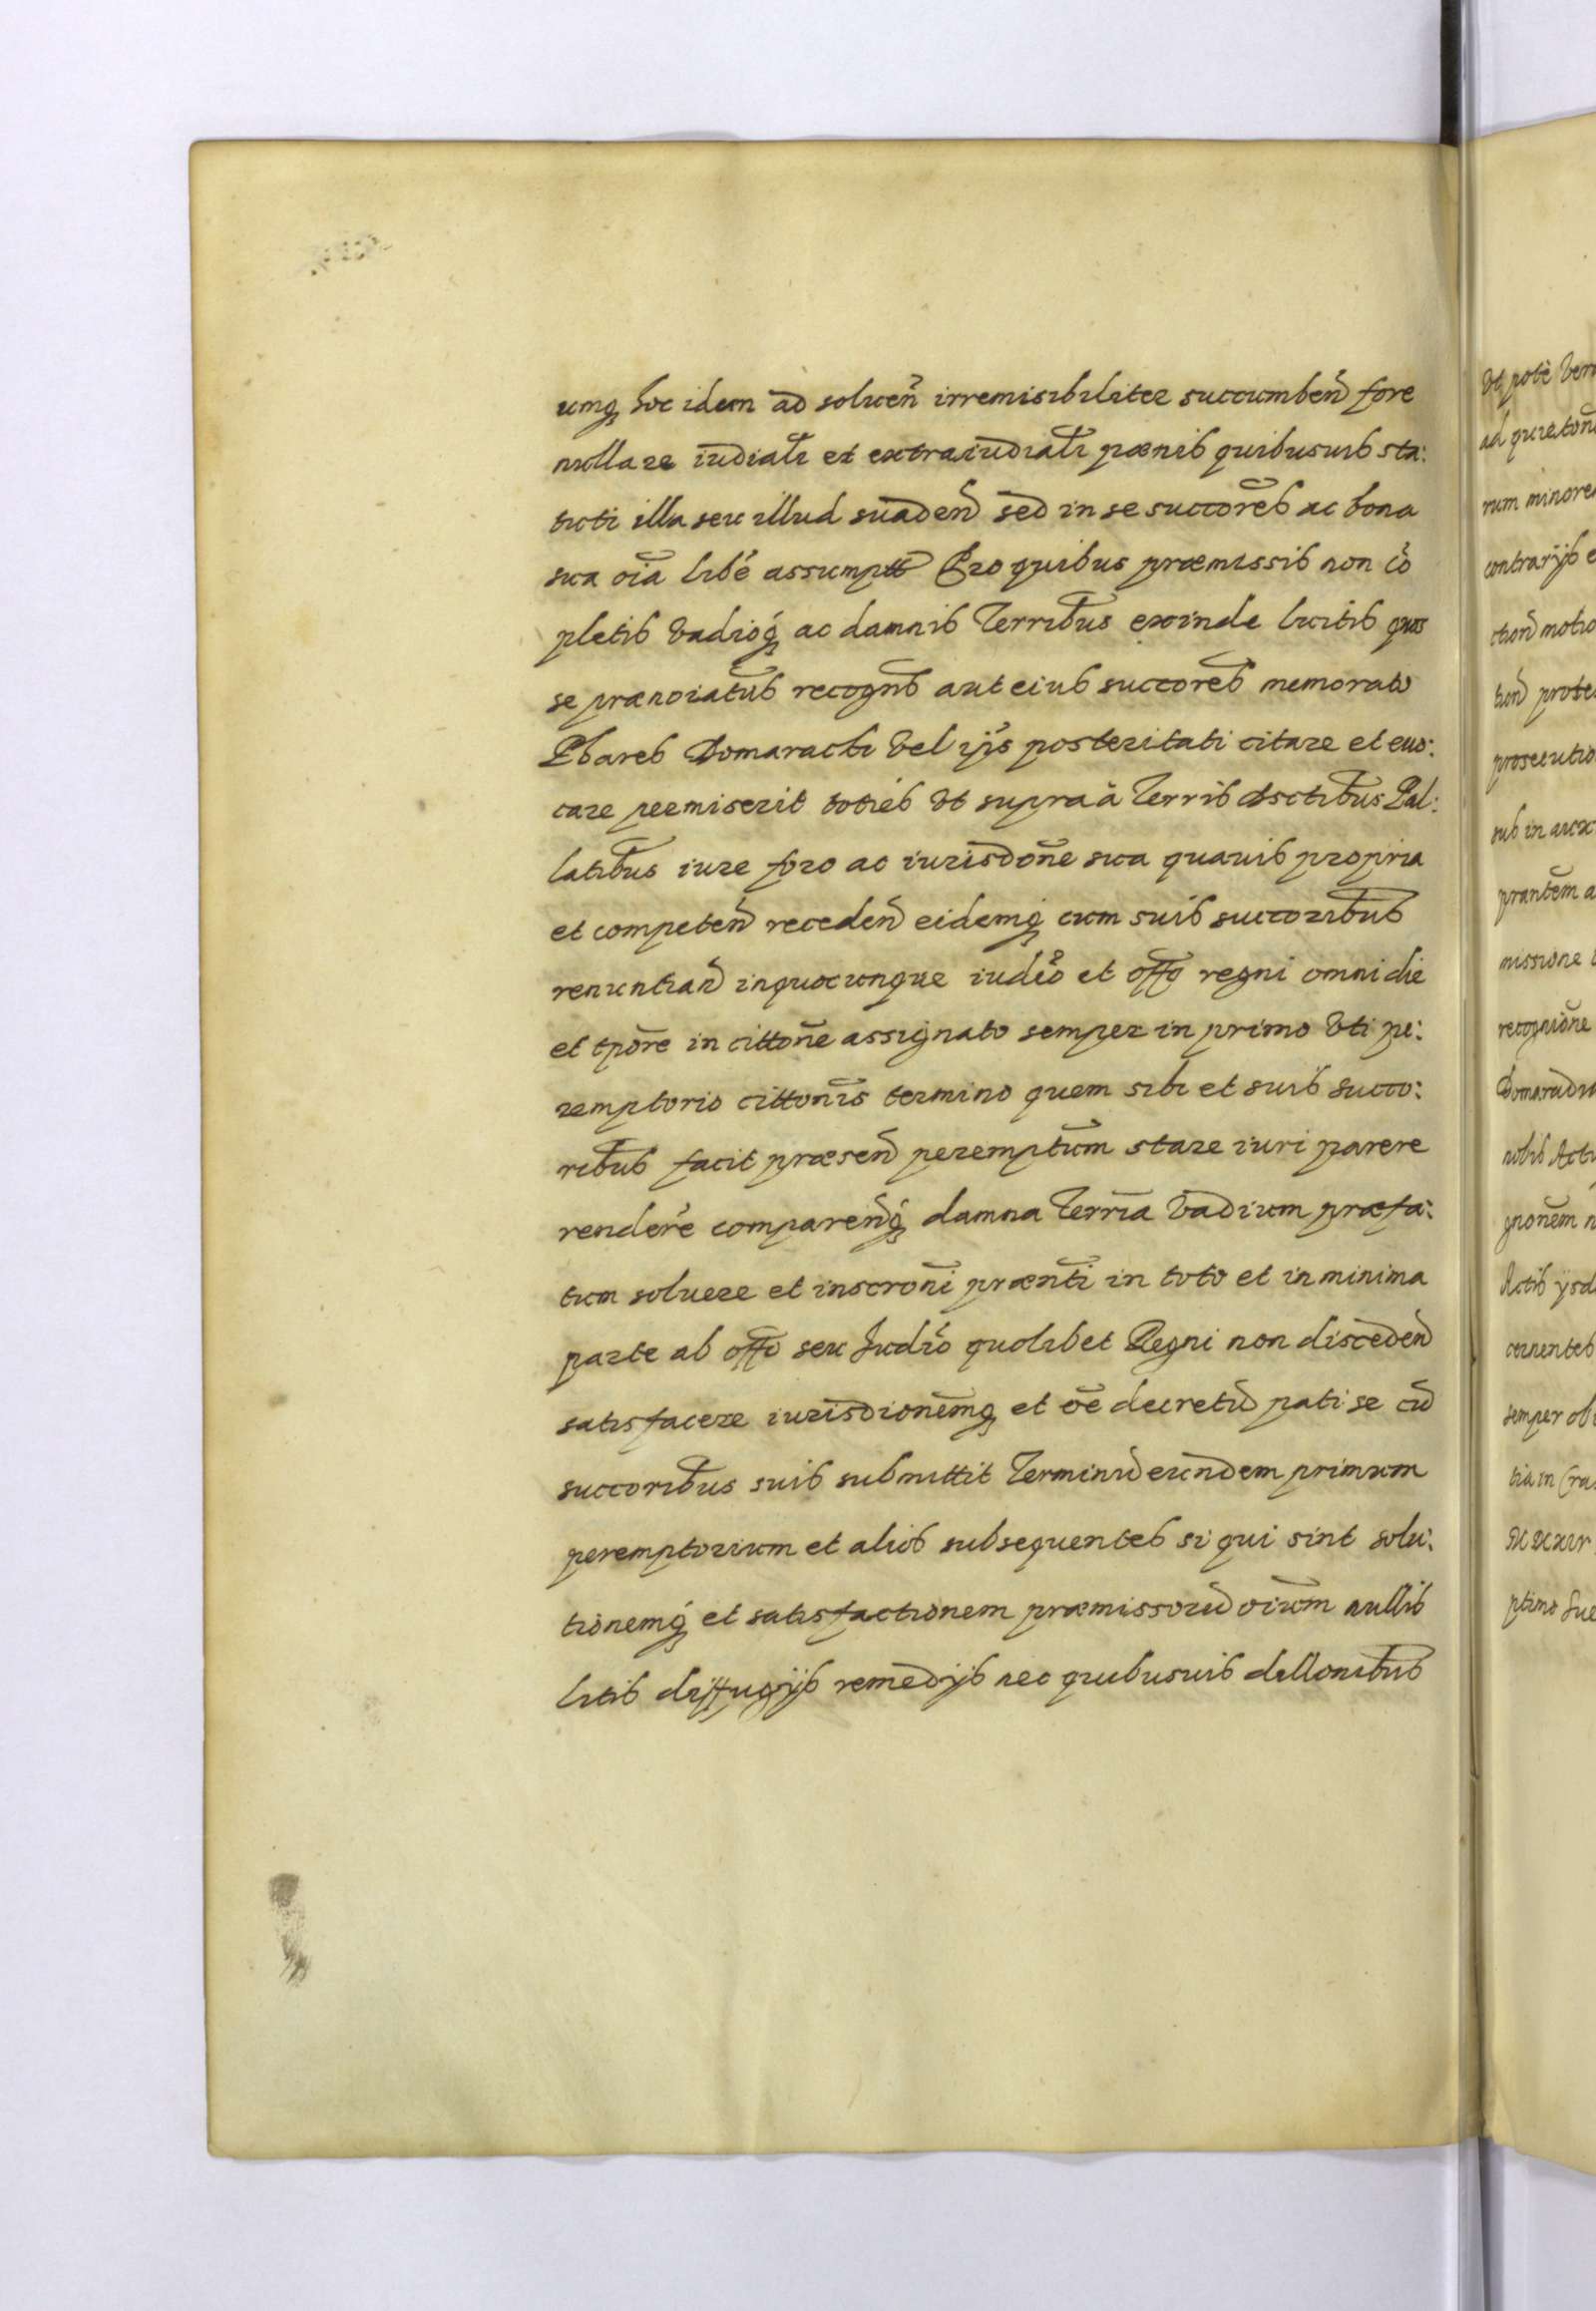 umq₃ hoc idem ad soluen̄ irremisibiliter succumben̄ fore
nullare iudiali et extraiudiali pœnis quibusuis sta:
tuti illa seu illud suaden̄ sed in se succores ac bona
sua oīa libé assumptt Pro quibus præmissis non cō
pletis vadioq́₃ ac damnis Terribus exinde licitis quos
se prænoiatus recogns aut eius succores memorato
Phares Domarachi vel ijs posteritati citare et euo:
care permiserit toties vt supra à Terris dsctibus Pal:
latibus iure foro ac iurisdone sua quauis propria
et competen̄ receden̄ eidemq́₃ cum suis succoribus
renuntian̄ inquocunque iudio et offo regni omni die
et tpōre in cittone assignato semper in primo vti pe:
remptorio cittonis termino quem sibi et suis succo:
ribus facit præsen̄ peremptum stare iuri parere
rendere comparenq́₃ damna Terria vadium præfa:
tum soluere et inscroni prænti in toto et in minima
parte ab offo seu Judio quolibet Regni non disceden̄
satisfacere iurisdionemq₃ et oē decretū pati se cū
succoribus suis submittit Terminū eundem primum
peremptorium et alios subsequentes si qui sint solu:
tionemq́₃ et satisfactionem præmissorū oium nullis
litis diffugijs remedijs nec quibusuis dillonibus
vt pote
ad
rum minore
contrarijs e
ction̄ motio
tion̄ prote
prosecutio
sub in
prantem a
missione
recognione
Domarad
nobis Act
gnonem n
Actis ysd
cernentes
semper ob
tia in Cra

ptimo